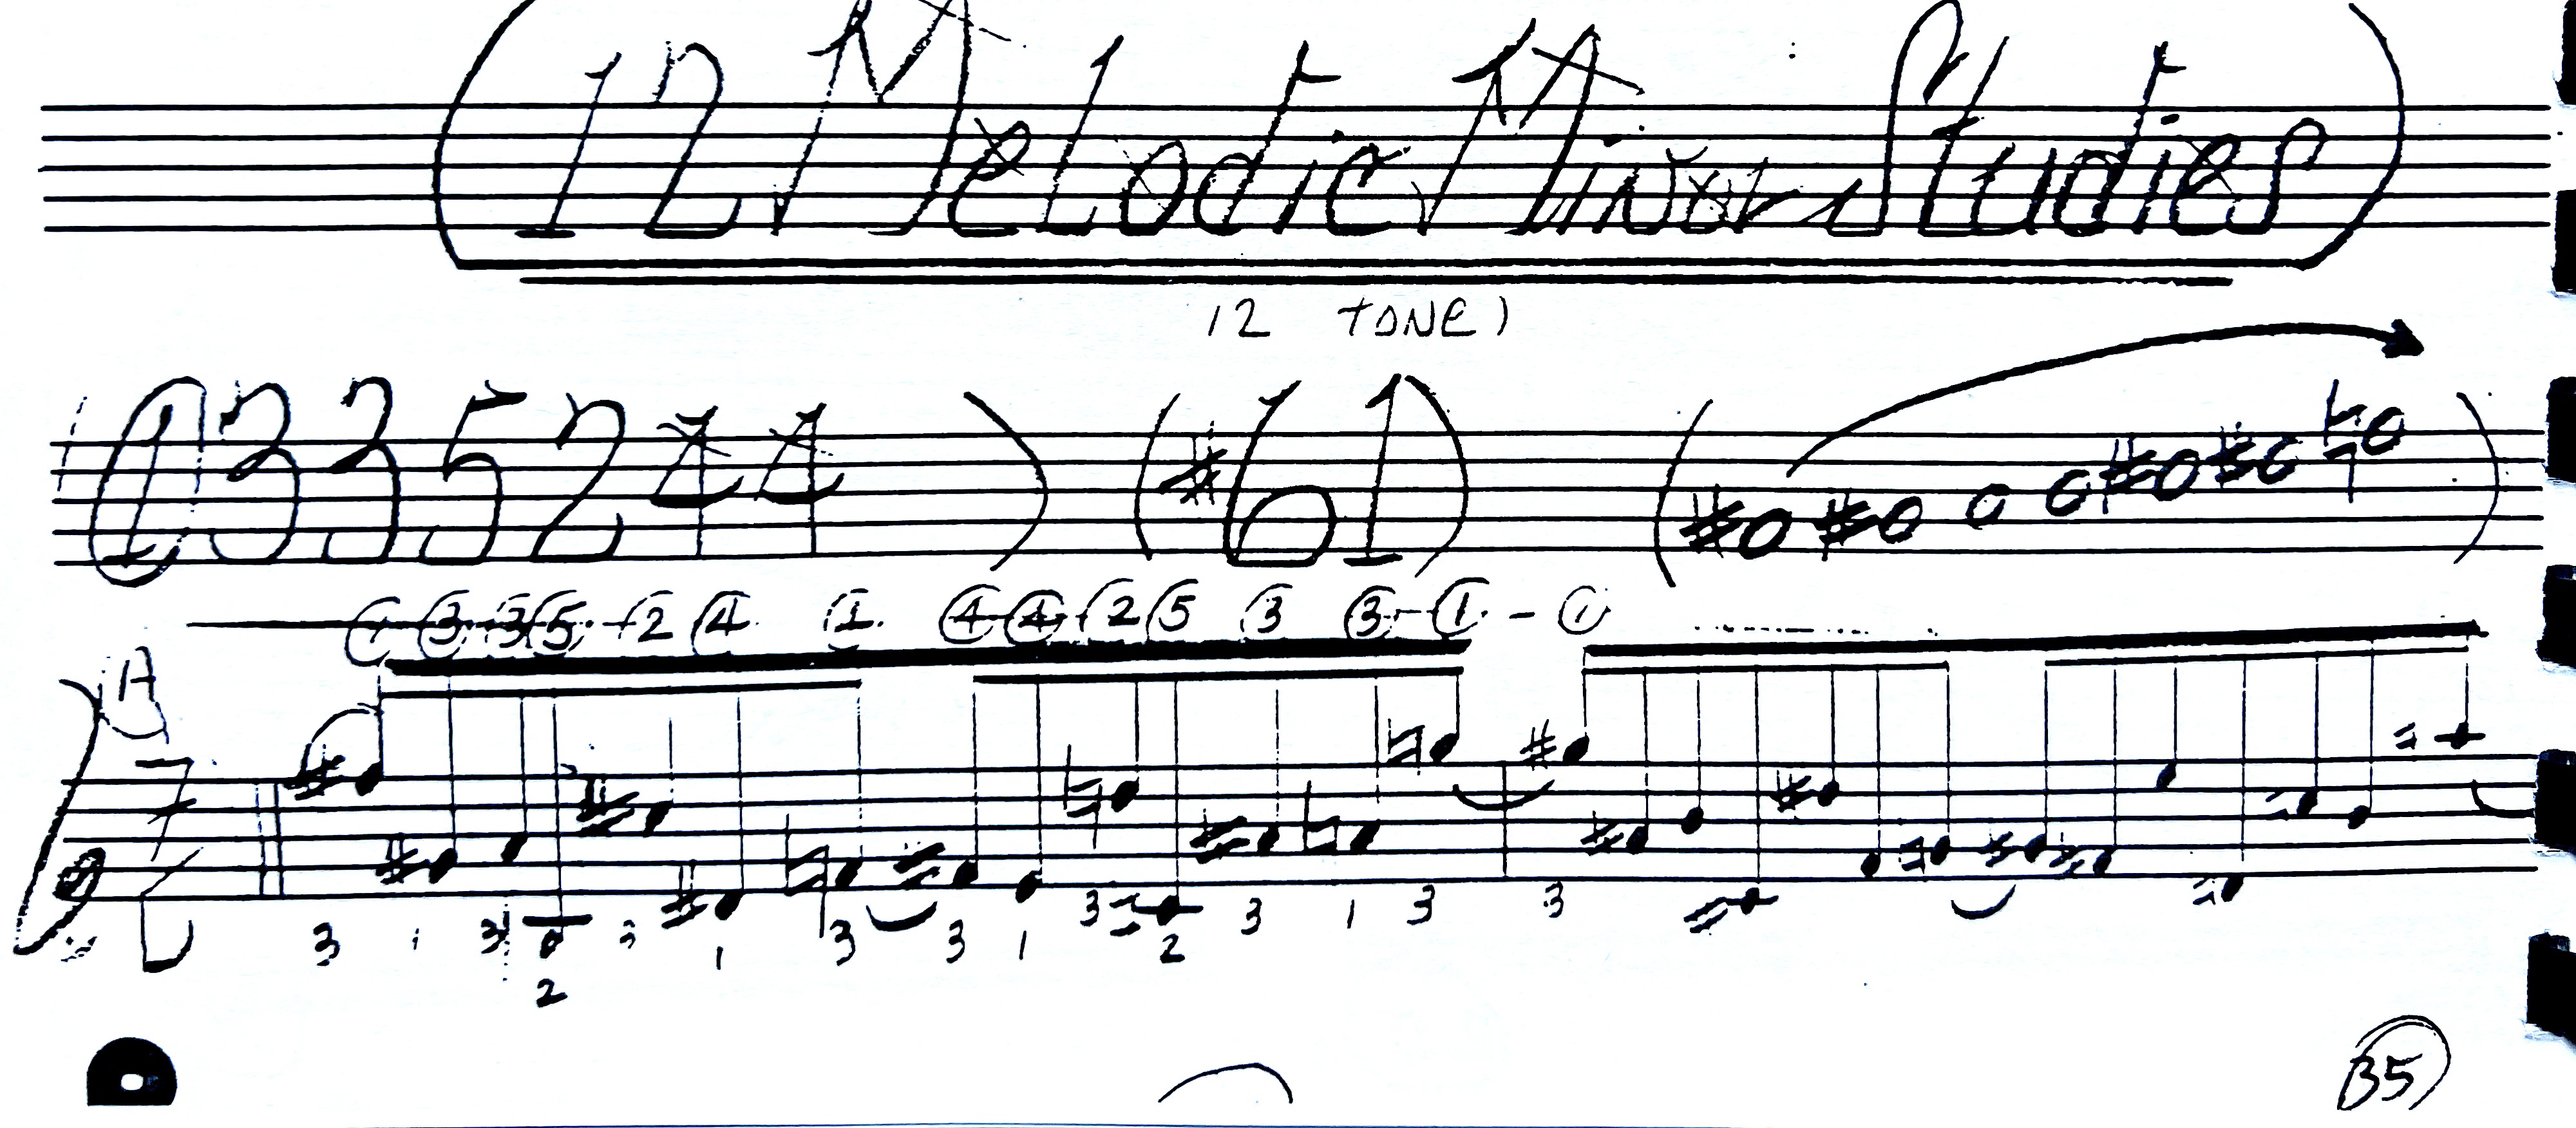 12 MeLodic Minor Studies
12 TONE)
(1335244) (#61)
1 3 3 5 2 4 1 4 4 2 5 3 3 - 1 - 1
A
7
3 1 3 2 3 1 3 3 1 3 2 3 1 3 3
35